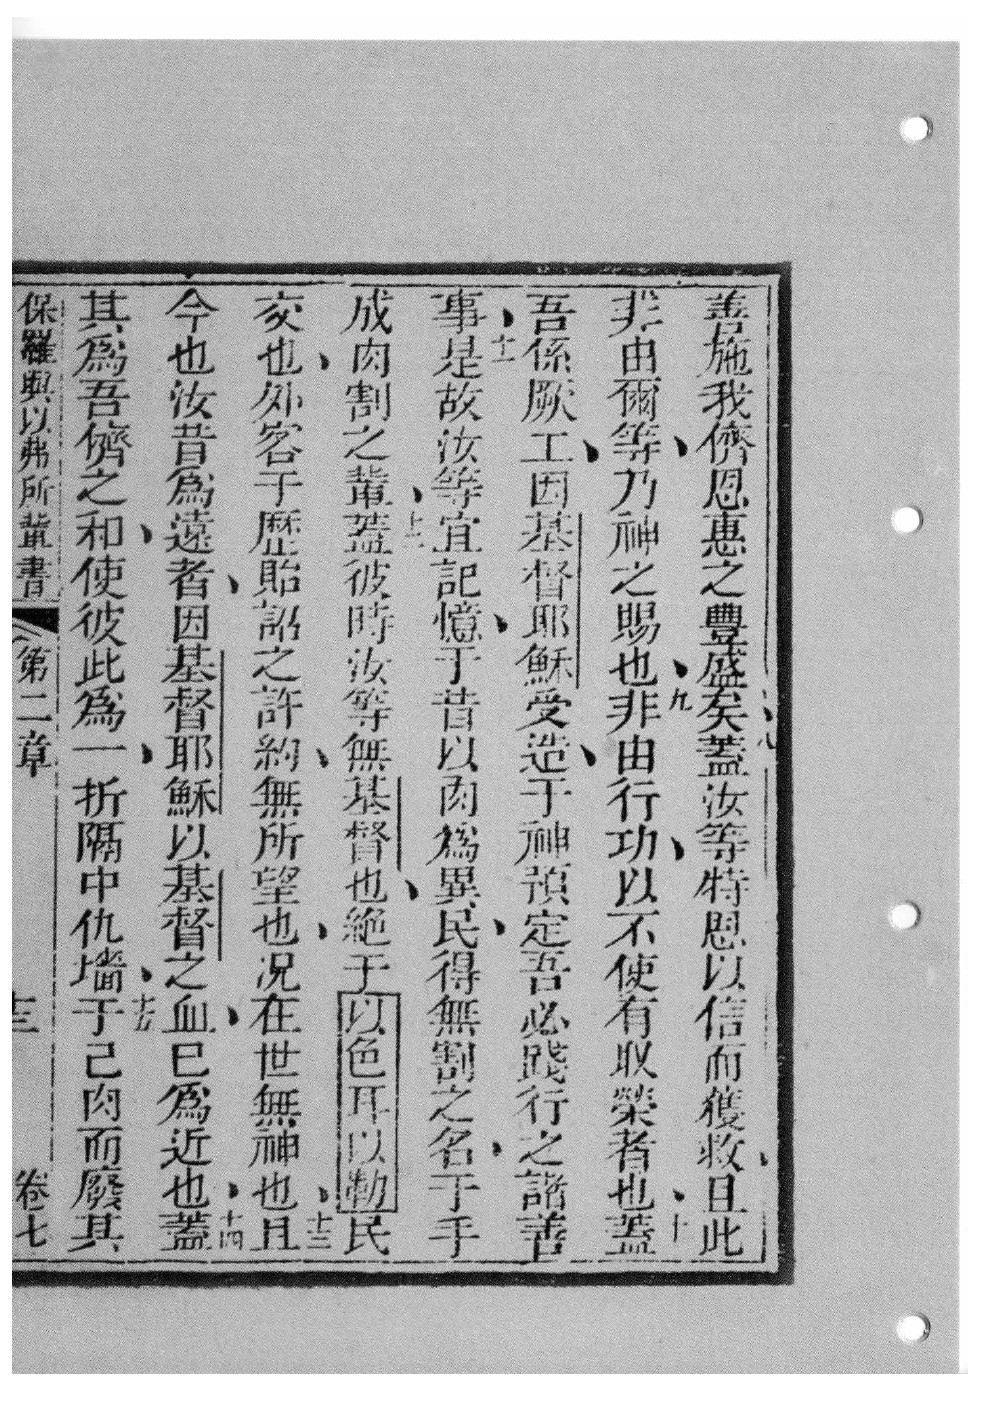 善施我儕恩惠之豐盛矣八蓋汝等特恩以信而獲救且此
非由爾等乃神之賜也九非由行功以不使有取榮者也十蓋
吾係厥工因基督耶穌受造于神預定吾必踐行之諸善
事十一是故汝等宜記憶于昔以肉為異民得無割之名于手
成肉割之輩十二蓋彼時汝等無基督也絕于以色耳以勒民
交也外客于歷貽詔之許約無所望也况在世無神也十三且
今也汝昔為遠者因基督耶穌以基督之血已為近也十四蓋
其為吾儕之和使彼此為一折隔中仇墻十五于己肉而廢其
保羅與以弗所輩書 第二章 十三 卷七